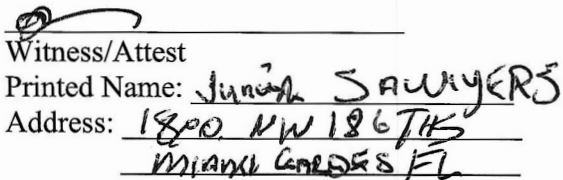 Witness/Attest
Printed Name: Junior SAWYERS
Address: 1800 NW 186 THS
MIAMI GARDES FL